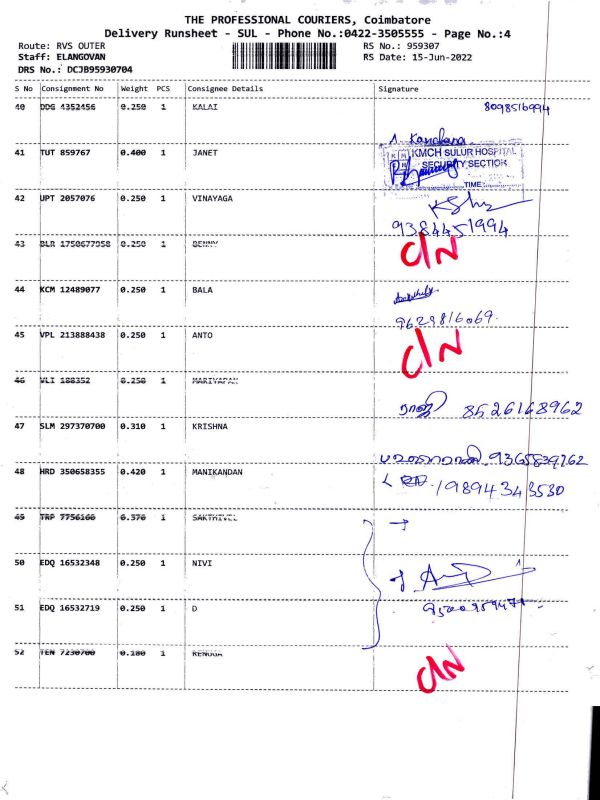 THE PROFESSIONAL COURIERS, Coimbatore
Delivery Runsheet - SUL - Phone No.:0422-3505555 - Page No.:4
Route: RVS OUTER
RS No.: 959307
Staff: ELANGOVAN
RS Date: 15-Jun-2022
DRS No.: DCJB95930704
S No Consignment No Weight PCS Consignee Details Signature
40 DDG 4352456 0.250 1 KALAI 8098516994
41 TUT 859767 0.400 1 JANET
KMCH SULUR HOSPITAL
SECURITY SECTION
TIME:
42 UPT 2057076 0.250 1 VINAYAGA
9384451994
43 BLR 1750677958 0.250 1 BENNY C/N
44 KCM 12489077 0.250 1 BALA
9629816069.
45 VPL 213888438 0.250 1 ANTO C/N
46 VLI 188352 0.250 1 MARIYAPAN
ராஜ் 8526148962
47 SLM 297370700 0.310 1 KRISHNA
9365839762
48 HRD 350658355 0.420 1 MANIKANDAN
19894343530
49 TRP 7756166 0.370 1 SAKTHIVEL
50 EDQ 16532348 0.250 1 NIVI
51 EDQ 16532719 0.250 1 D
52 TEN 7230700 0.180 1 C/N